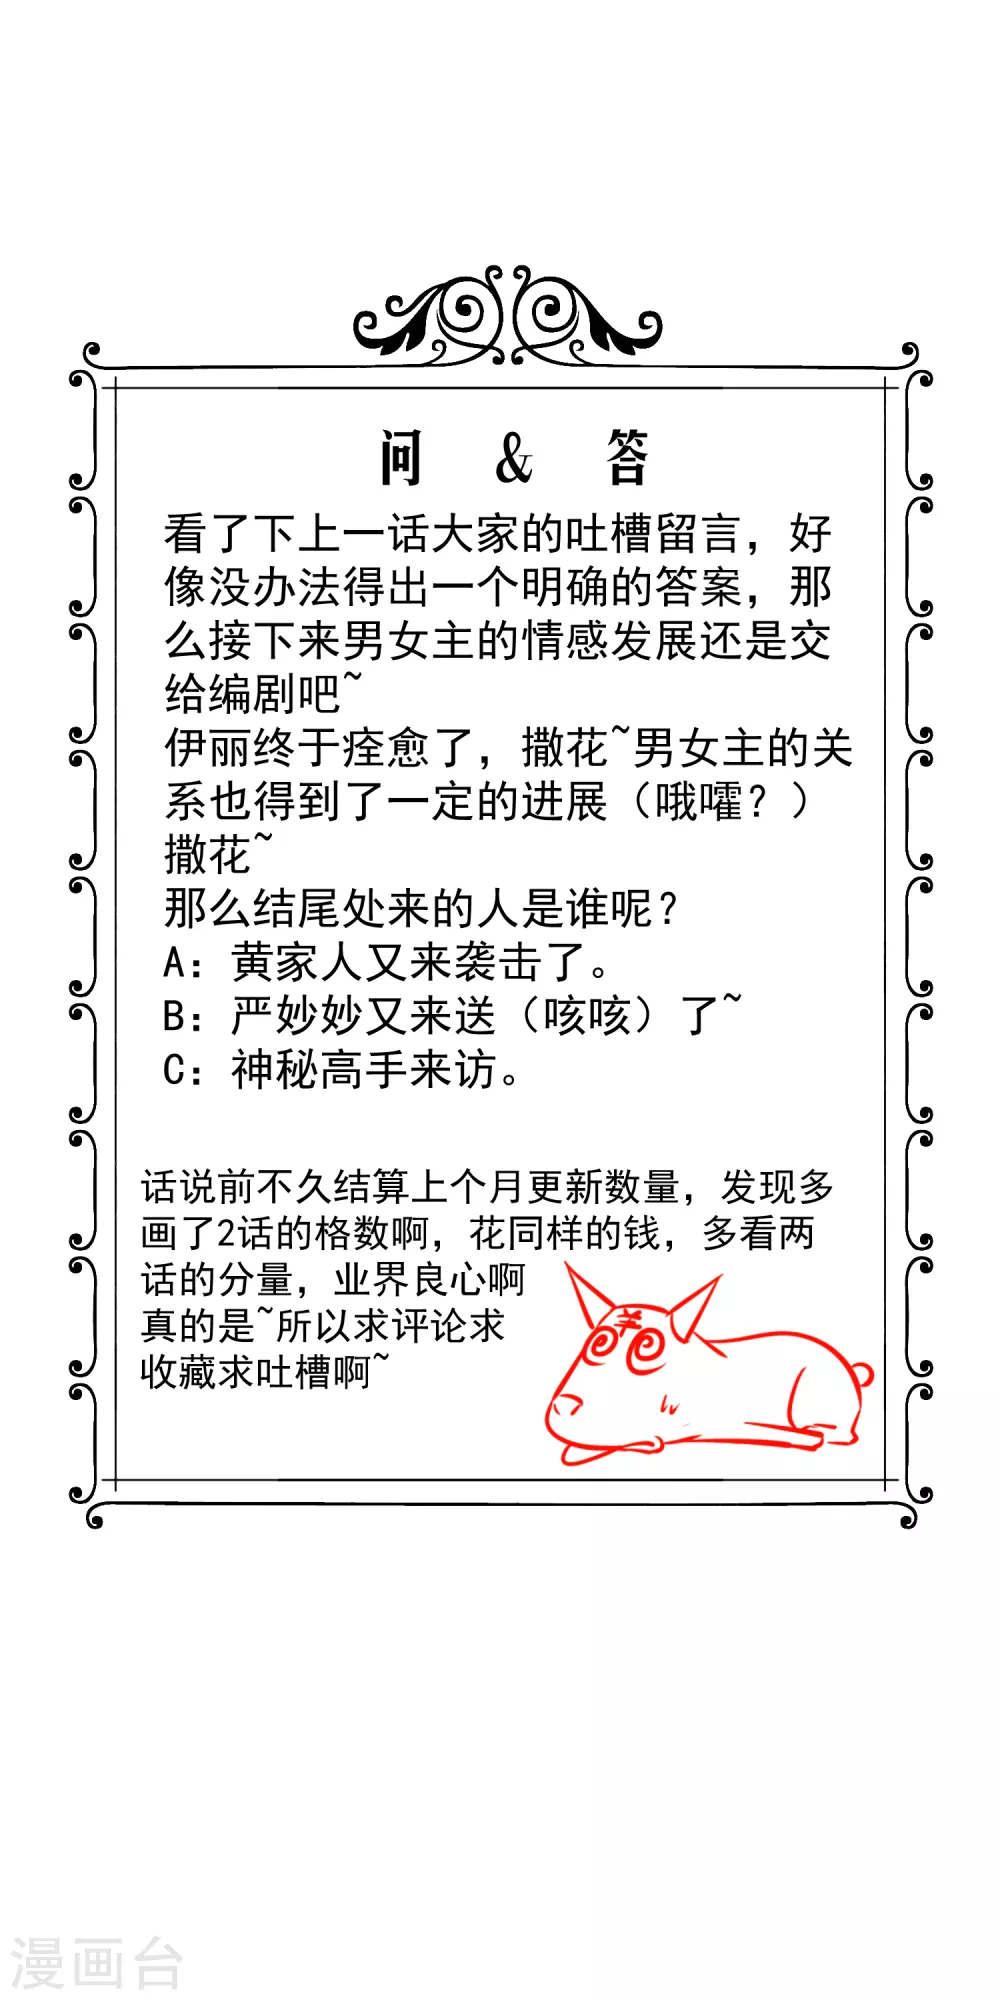 问 & 答
看了下上一话大家的吐槽留言，好
像没办法得出一个明确的答案，那
么接下来男女主的情感发展还是交
给编剧吧~
伊丽终于痊愈了，撒花~男女主的关
系也得到了一定的进展（哦嚯？）
撒花~
那么结尾处来的人是谁呢？
A：黄家人又来袭击了。
B：严妙妙又来送（咳咳）了~
C：神秘高手来访。
话说前不久结算上个月更新数量，发现多
画了2话的格数啊，花同样的钱，多看两
话的分量，业界良心啊
真的是~所以求评论求
收藏求吐槽啊~
漫画台